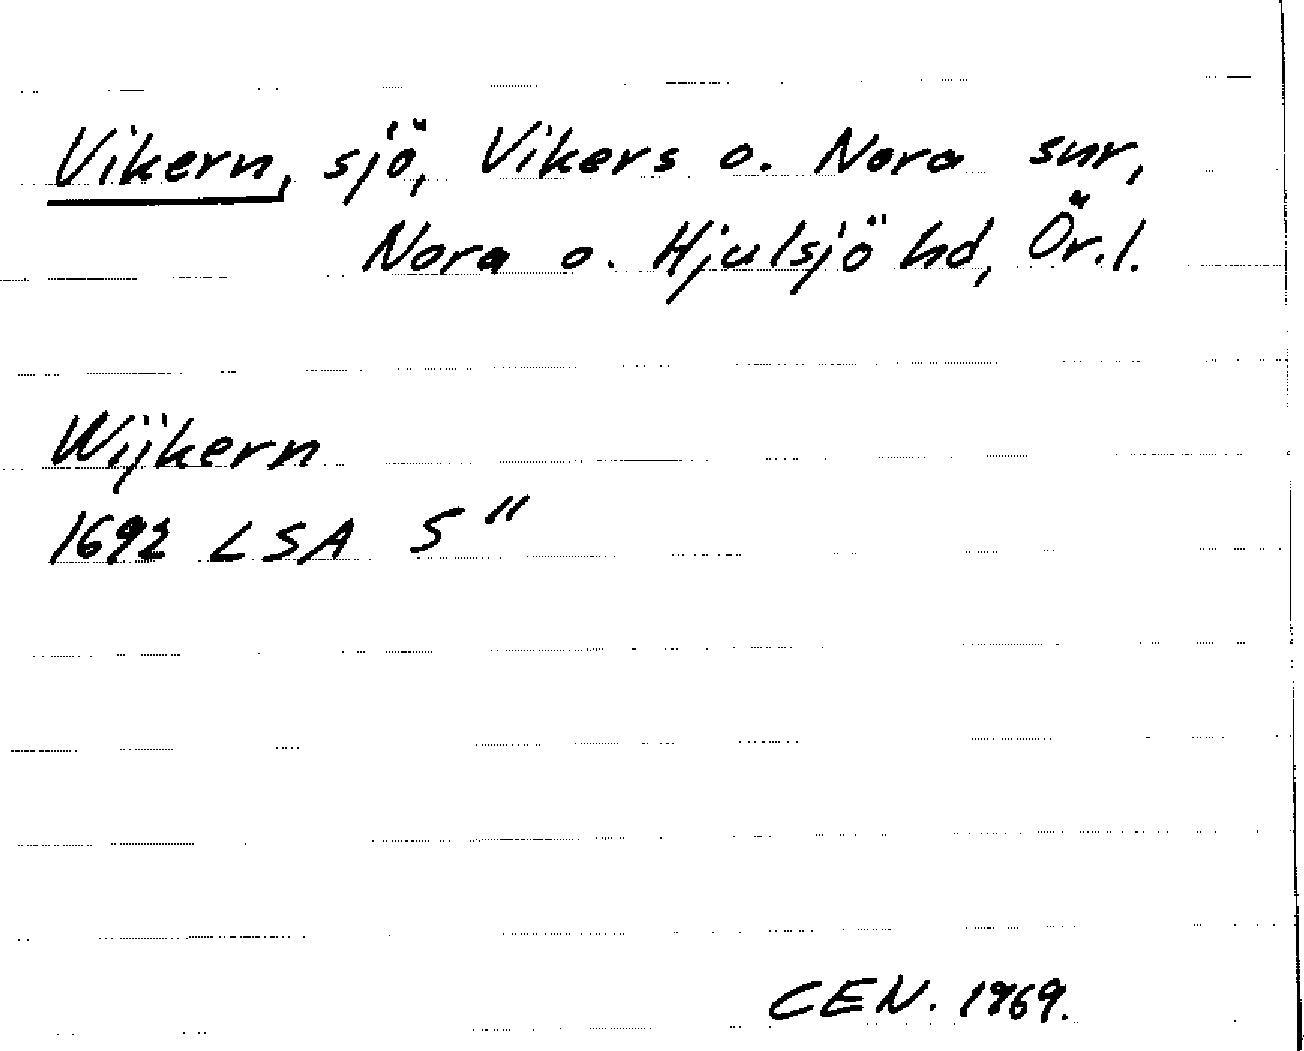 Vikern, sjö, Vikers o. Nora snr,
Nora o. Hjulsjö hd, Ör.l.
Wijkern
1692 LSA S "
CEN. 1969.